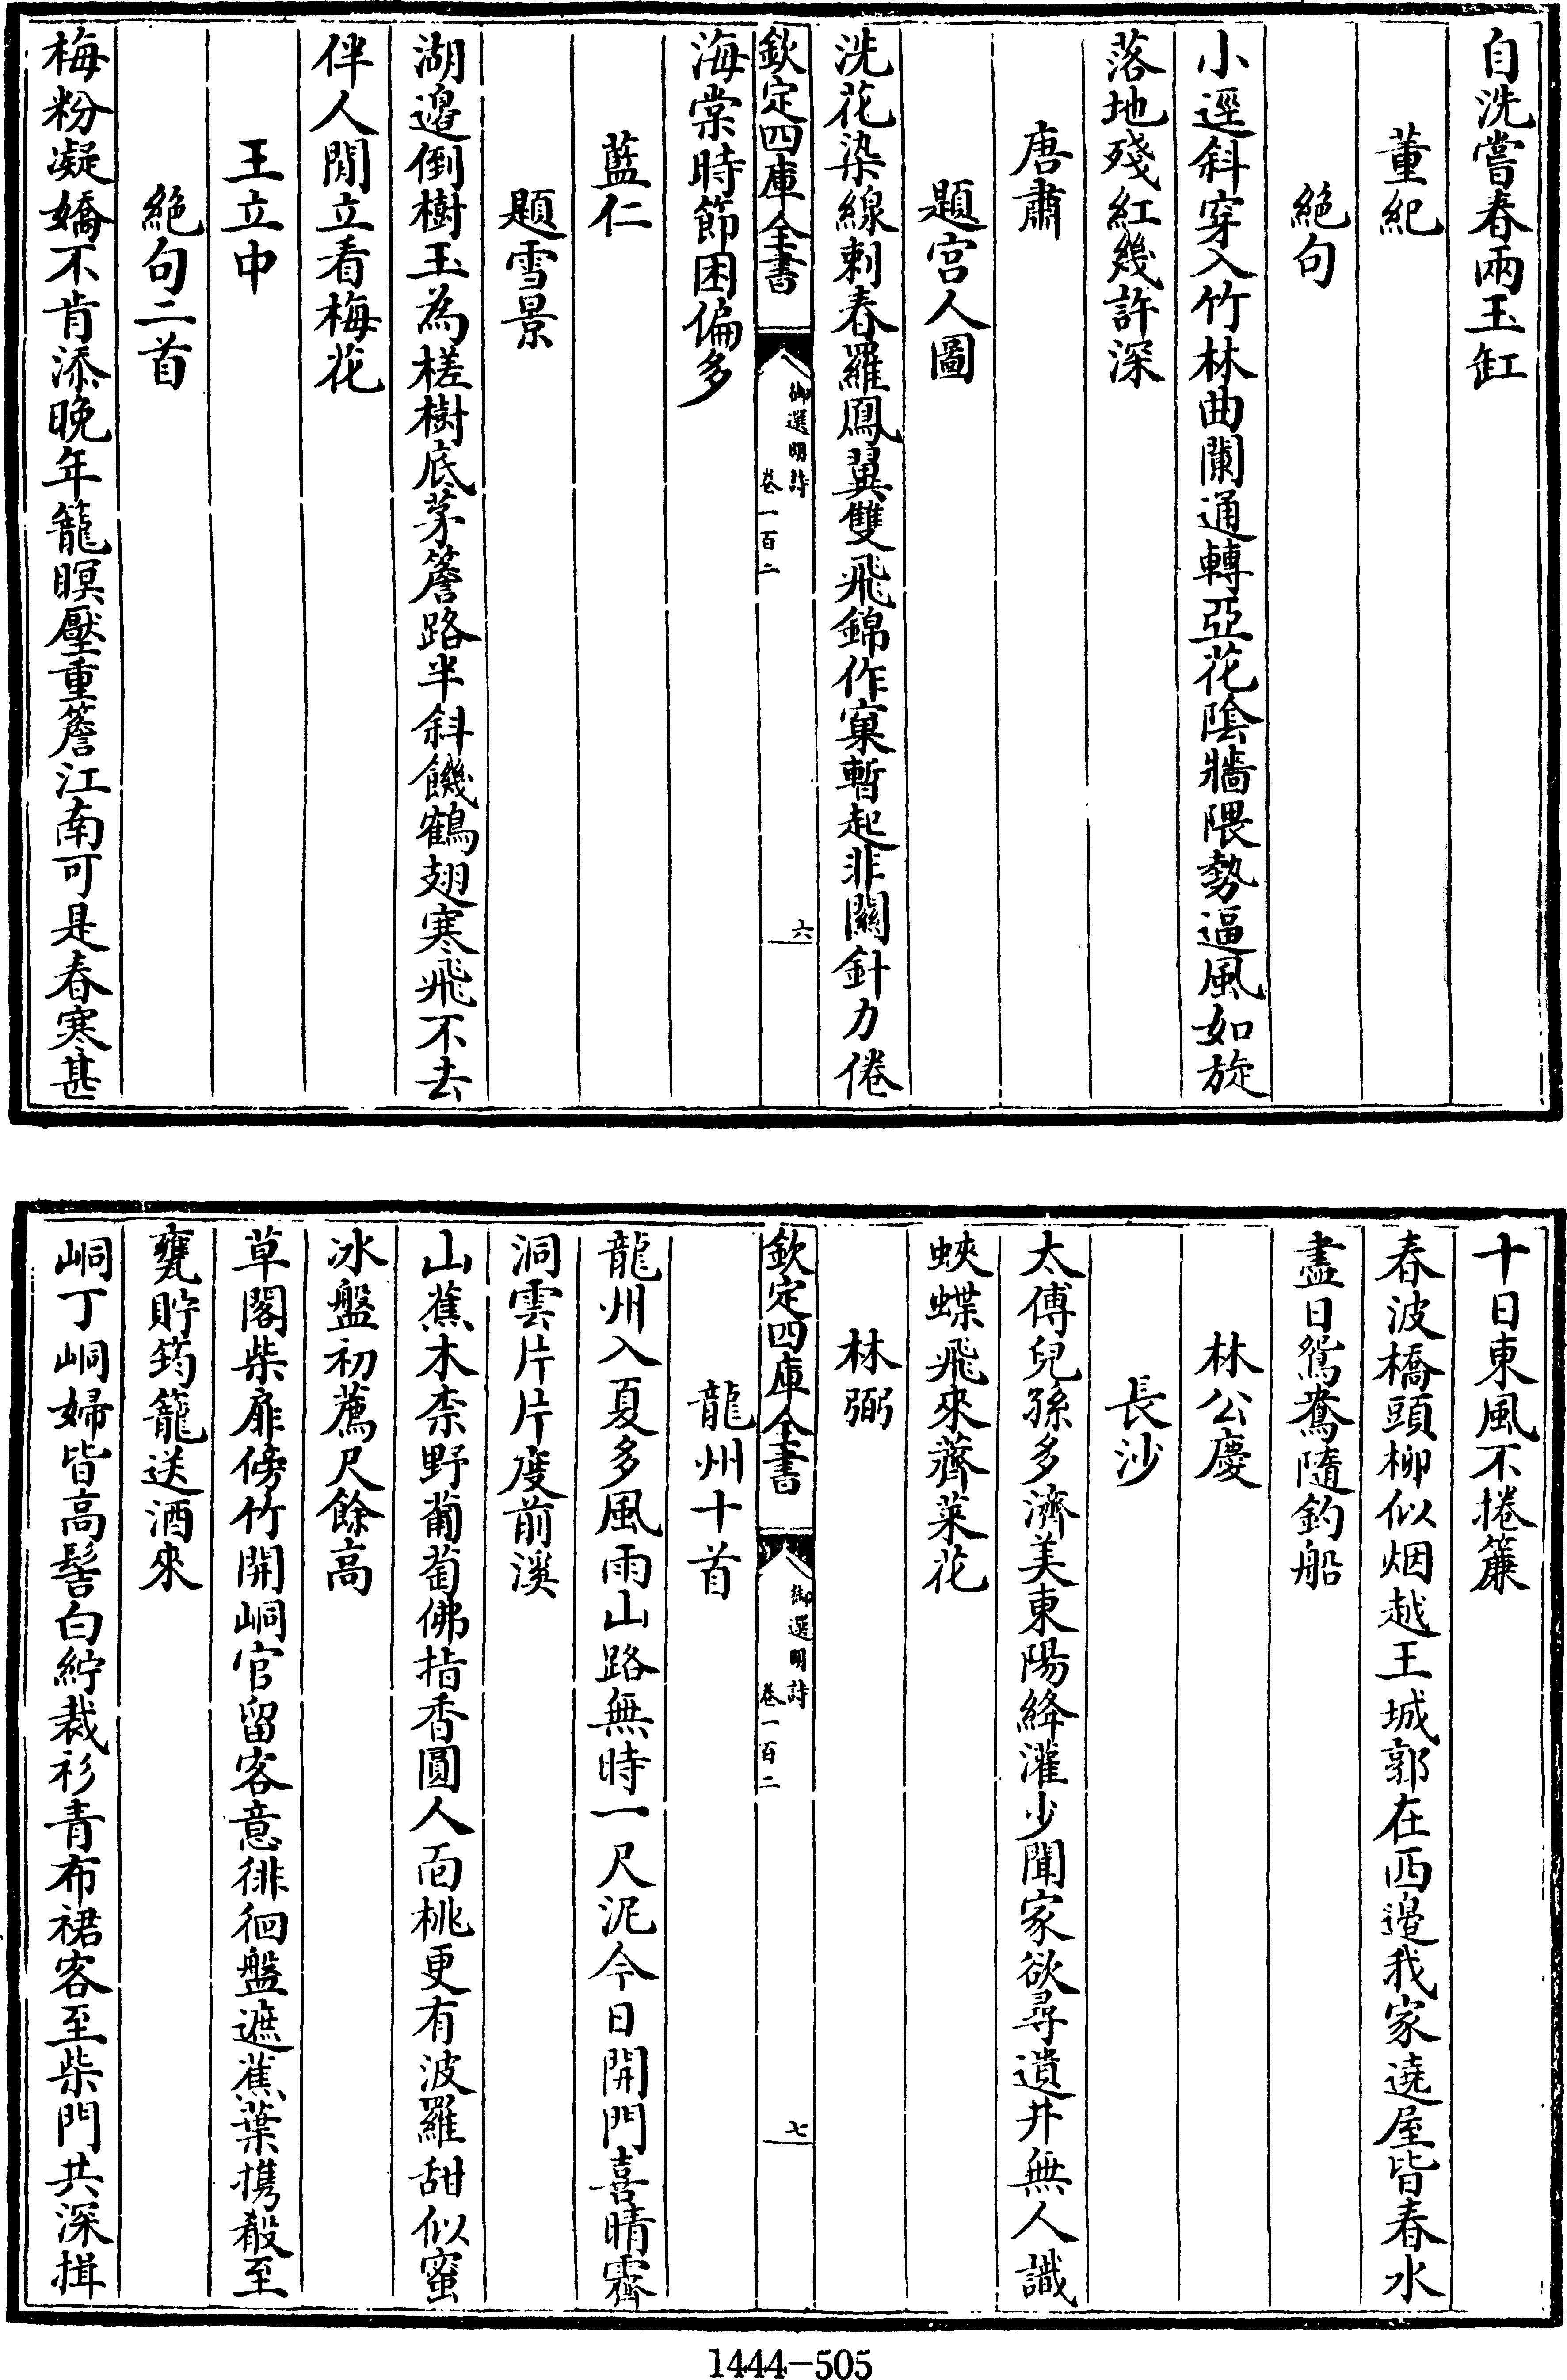 自洗嘗春兩玉缸
董紀
絕句
小逕斜穿入竹林曲闌通轉亞花陰牆隈勢逼風如旋
落地殘紅幾許深
唐肅
題宫人圖
洗花染線刺春羅鳳翼雙飛錦作窠暫起非關針力倦
欽定四庫全書
御選明詩
卷一百二
六
海棠時節困偏多
藍仁
題雪景
湖邉倒樹玉為槎樹底茅簷路半斜饑鶴翅寒飛不去
伴人閒立看梅花
王立中
絕句二首
梅粉凝嬌不肯添晚年籠暝壓重簷江南可是春寒甚
十日東風不捲簾
春波橋頭柳似烟越王城郭在西邉我家遶屋皆春水
盡日鴛鴦隨釣船
林公慶
長沙
太傅兒孫多濟美東陽絳灌少聞家欲尋遺井無人識
蛺蝶飛來薺菜花
林弼
欽定四庫全書
御選明詩
卷一百二
七
龍州十首
龍州入夏多風雨山路無時一尺泥今日開門喜晴霽
洞雲片片度前溪
山蕉木柰野葡萄佛指香圓人面桃更有波羅甜似蜜
冰盤初薦尺餘高
草閣柴扉傍竹開峒官留客意徘徊盤遮蕉葉携殽至
甕貯筠籠送酒來
峒丁峒婦皆高髻白紵裁衫青布裙客至柴門共深揖
1444-505